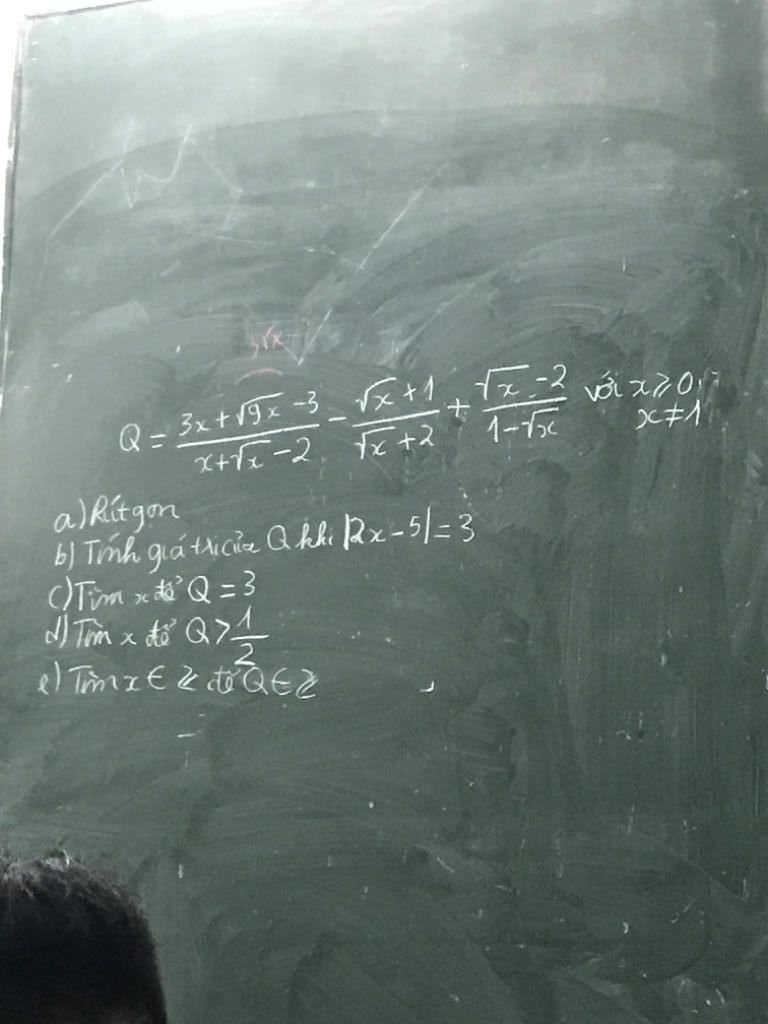 3√x
Q = (3x + √9x - 3)/(x + √x - 2) - (√x + 1)/(√x + 2) + (√x - 2)/(1 - √x) với x ⩾ 0, x ≠ 1
a) Rút gọn
b) Tính giá trị của Q khi |2x - 5| = 3
c) Tìm x để Q = 3
d) Tìm x để Q > 1/2
e) Tìm x ∈ ℤ để Q ∈ ℤ